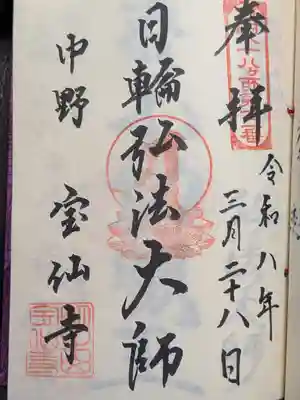 奉拝
令和八年
三月二十八日
日輪弘法大師
中野 宝仙寺